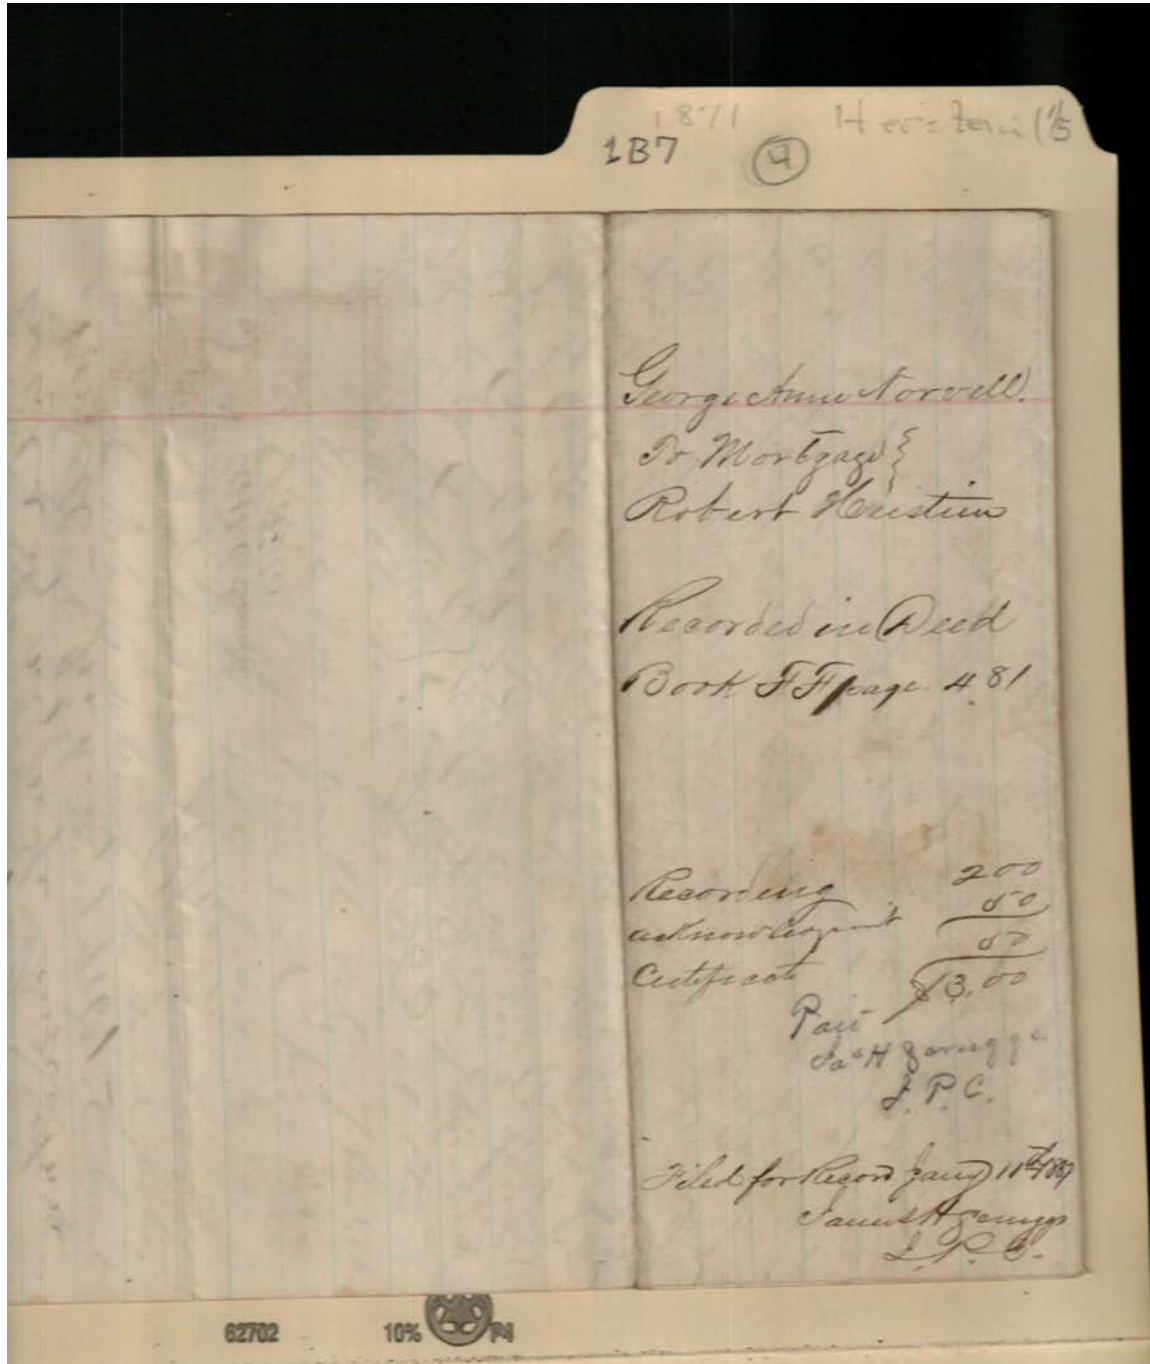 1871
1B7 (4)
George Anne Norvell.
To Mortgage }
Robert Herstein
Recorded in Deed
Book FF page 481
Recording 200
acknowledgment 50
Certificate 50
$3.00
Paid
Jas H Scruggs
J. P. C.
Filed for Record Jany 11th
James H Scruggs
J. P. C.
62702 10%